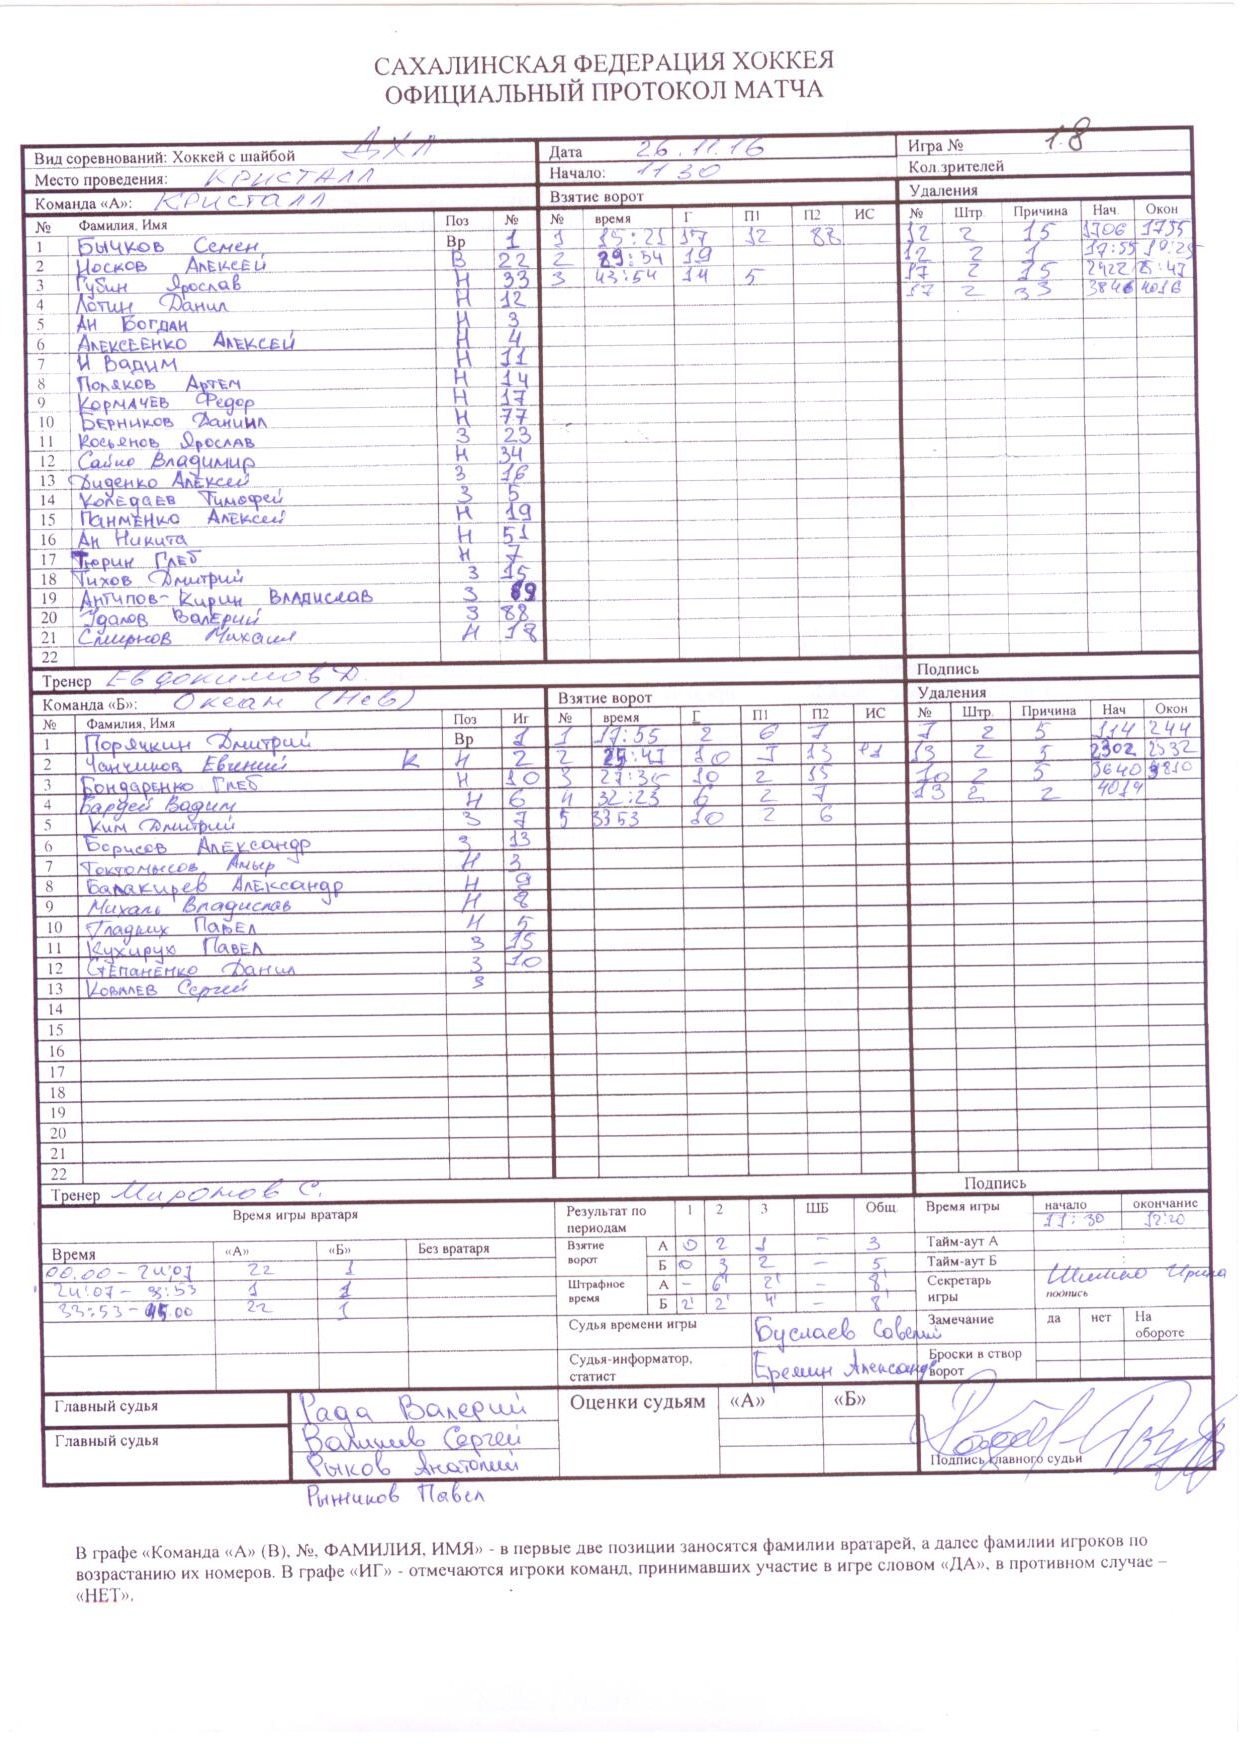 САХАЛИНСКАЯ ФЕДЕРАЦИЯ ХОККЕЯ
ОФИЦИАЛЬНЫЙ ПРОТОКОЛ МАТЧА
Вид соревнований: Хоккей с шайбой ДХЛ Дата 26.11.16 Игра № 18
Место проведения: КРИСТАЛЛ Начало: 11 30 Кол.зрителей
Команда «А»: КРИСТАЛЛ Взятие ворот Удаления
№ Фамилия, Имя Поз № № время Г П1 П2 ИС № Штр. Причина Нач. Окон
1 Бычков Семен Вр 1 1 15:21 17 12 88 12 2 15 1706 1755
2 Носков Алексей В 22 2 29:54 19 12 2 1 17:55
3 Губин Ярослав Н 33 3 43:54 14 5 17 2 15 2422 25:47
4 Лотин Данил Н 12 17 2 33 3846 4016
5 Ан Богдан Н 3
6 Алексеенко Алексей Н 4
7 И Вадим Н 11
8 Поляков Артем Н 14
9 Кормачев Федор Н 17
10 Берников Даниил Н 77
11 Косьянов Ярослав З 23
12 Сайко Владимир Н 34
13 Диденко Алексей З 16
14 Коледаев Тимофей З 5
15 Панменко Алексей Н 19
16 Ан Никита Н 51
17 Тюрин Глеб Н 7
18 Тихов Дмитрий З 15
19 Антипов-Кирин Владислав З 89
20 Удалов Валерий З 88
21 Смирнов Михаил Н 18
22
Тренер Евдокимов Д. Подпись
Команда «Б»: Океан (Нев) Взятие ворот Удаления
№ Фамилия, Имя Поз Иг № время Г П1 П2 ИС № Штр. Причина Нач Окон
1 Порячкин Дмитрий Вр 1 1 17:55 2 6 7 7 2 5 114 244
2 Чанчиков Евгений К Н 2 2 25:47 10 7 13 13 2 5 2302 2332
3 Бондаренко Глеб Н 10 3 27:35 10 2 15 10 2 5 3640 3810
4 Бардей Вадим Н 6 4 32:23 6 2 7 13 2 2 4014
5 Ким Дмитрий З 7 5 3353 10 2 6
6 Борисов Александр З 13
7 Токтомысов Амыр Н 3
8 Балакирев Александр Н 9
9 Михаль Владислав Н 8
10 Гладких Павел Н 5
11 Кухирук Павел З 15
12 Степаненко Данил З 10
13 Ковалев Сергей З
14
15
16
17
18
19
20
21
22
Тренер Миронов С. Подпись
Время игры вратаря Результат по периодам 1 2 3 ШБ Общ. Время игры начало окончание
11:30 12:20
Время «А» «Б» Без вратаря Взятие ворот А 0 2 1 – 3 Тайм-аут А :
00.00 – 24:07 22 1 Б 0 3 2 – 5 Тайм-аут Б :
24:07 – 33:53 1 1 Штрафное время А – 6' 2' – 8' Секретарь игры подпись
33:53 – 45.00 22 1 Б 2' 2' 4' – 8'
Судья времени игры Буслаев Савелий Замечание да нет На обороте
Судья-информатор, статист Еремин Александр Броски в створ ворот
Главный судья Рада Валерий Оценки судьям «А» «Б»
Главный судья Валиков Сергей
Рыков Анатолий Подпись главного судьи
Рыжиков Павел
В графе «Команда «А» (В), №, ФАМИЛИЯ, ИМЯ» - в первые две позиции заносятся фамилии вратарей, а далее фамилии игроков по
возрастанию их номеров. В графе «ИГ» - отмечаются игроки команд, принимавших участие в игре словом «ДА», в противном случае –
«НЕТ».